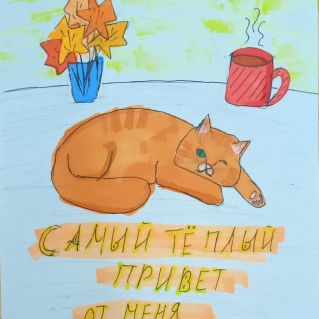 САМЫЙ ТЁПЛЫЙ
ПРИВЕТ
ОТ МЕНЯ